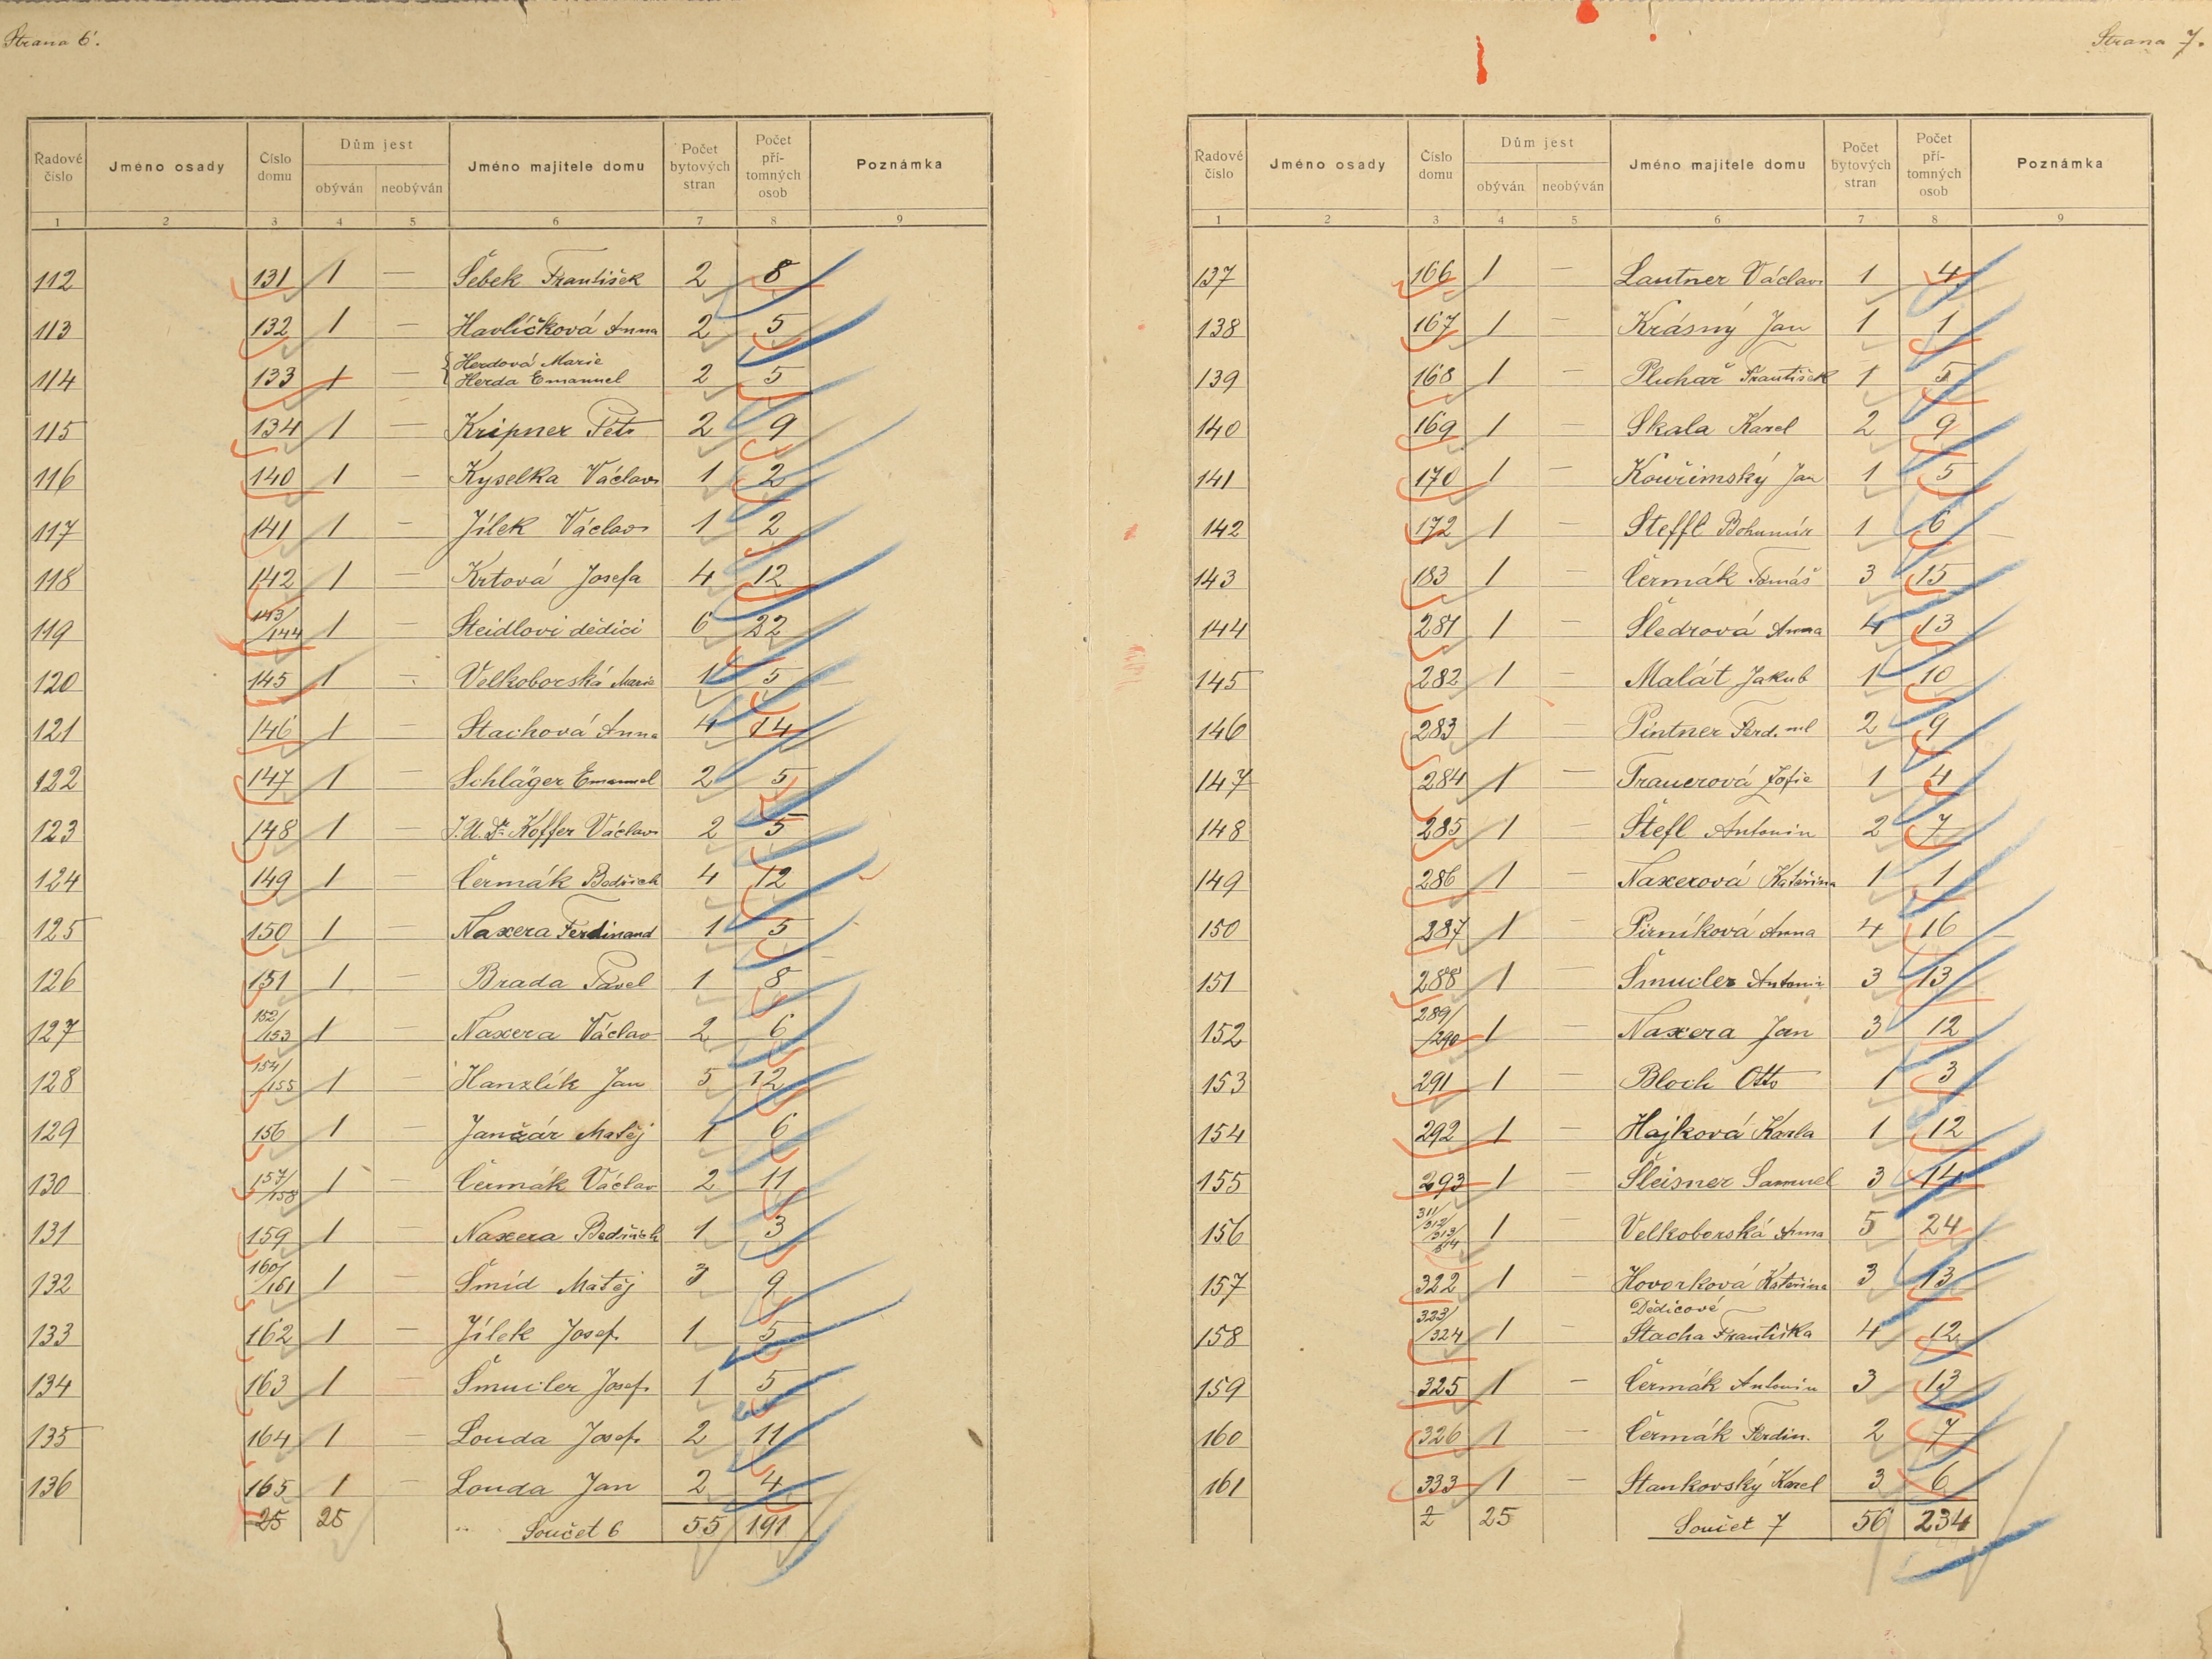 Strana 6.
Řadové číslo | Jméno osady | Číslo domu | Dům jest obýván | neobýván | Jméno majitele domu | Počet bytových stran | Počet přítomných osob | Poznámka
1 2 3 4 5 6 7 8 9
112 131 1 — Šebek František 2 8
113 132 1 — Havlíčková Anna 2 5
Herdová Marie
114 133 1 — Herda Emanuel 2 5
115 134 1 — Kripner Petr 2 9
116 140 1 — Kyselka Václav 1 2
117 141 1 — Jílek Václav 1 2
118 142 1 — Krtová Josefa 4 12
119 143/144 1 — Steidlovi dědici 6 22
120 145 1 — Velkoborská Marie 1 5
121 146 1 — Stachová Anna 4 14
122 147 1 — Schläger Emanuel 2 5
123 148 1 — J.U.Dr Koffer Václav 2 5
124 149 1 — Čermák Bedřich 4 12
125 150 1 — Naxera Ferdinand 1 5
126 151 1 — Brada Pavel 1 8
127 152/153 1 — Naxera Václav 2 6
128 154/155 1 — Hanzlík Jan 5 12
129 156 1 — Matěj 1 6
130 157/158 1 — Čermák Václav 2 11
131 159 1 — Naxera Bedřich 1 3
132 160/161 1 — Šmíd Matěj 3 9
133 162 1 — Jílek Josef 1 5
134 163 1 — Šmucler Josef 1 5
135 164 1 — Louda Josef 2 11
136 165 1 — Louda Jan 2 4
25 25 Součet 6 55 191
Strana 7.
Řadové číslo | Jméno osady | Číslo domu | Dům jest obýván | neobýván | Jméno majitele domu | Počet bytových stran | Počet přítomných osob | Poznámka
1 2 3 4 5 6 7 8 9
137 166 1 — Lautner Václav 1 4
138 167 1 — Krásný Jan 1 1
139 168 1 — Pluhař František 1 5
140 169 1 — Skala Karel 2 9
141 170 1 — Kouřimský Jan 1 5
142 172 1 — Steffl Bohumír 1 6
143 183 1 — Čermák Tomáš 3 15
144 281 1 — Šledrová Anna 4 13
145 282 1 — Malát Jakub 1 10
146 283 1 — Pintner Ferd. 2 9
147 284 1 — Trauerová Žofie 1 4
148 285 1 — Štefl Antonín 2 7
149 286 1 — Naxerová Kateřina 1 1
150 287 1 — Pirníková Anna 4 16
151 288 1 — Šmucler Antonín 3 13
152 289/290 1 — Naxera Jan 3 12
153 291 1 — Bloch Otto 1 3
154 292 1 — Hajková Karla 1 12
155 293 1 — Šleisner Samuel 3 14
156 311/312/313/314 1 — Velkoborská Anna 5 24
157 322 1 — Hovorková Kateřina 3 13
Dědicové
158 323/324 1 — Stacha Františka 4 12
159 325 1 — Čermák Antonín 3 13
160 326 1 — Čermák Ferdin. 2 7
161 333 1 — Stankovský Karel 3 6
25 Součet 7 56 234